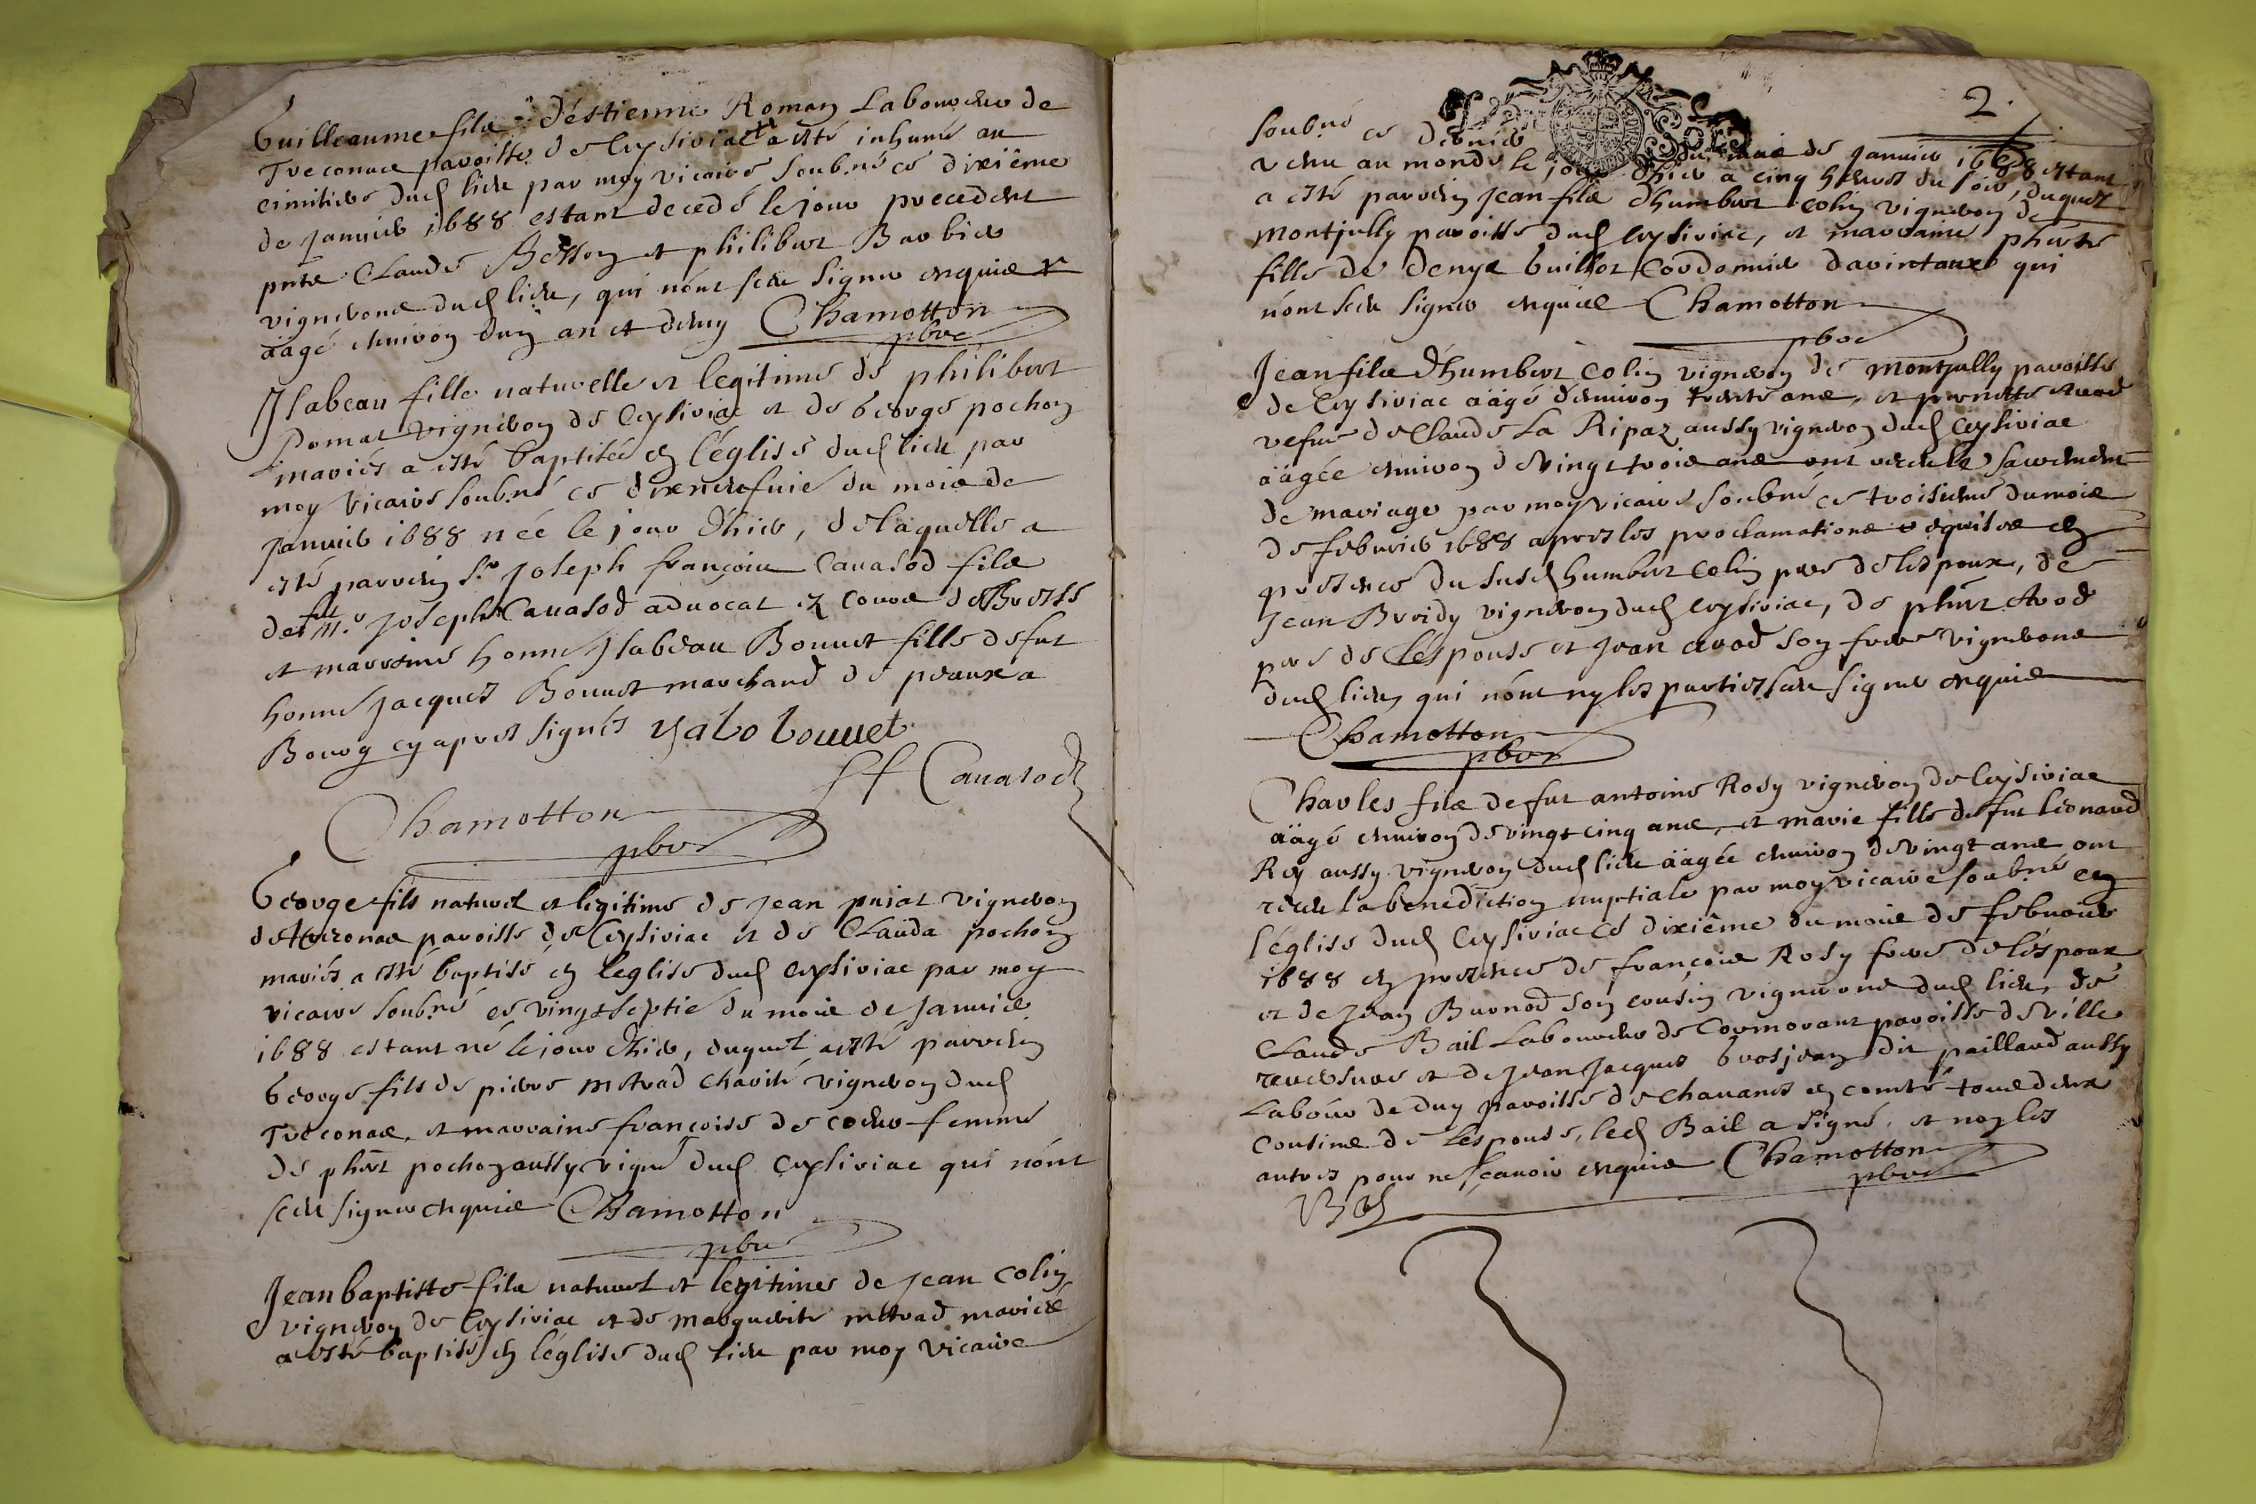 Guilleaume fils d'éstienne Roman Laboureur de
Treconnas paroisse de Ceysiriac a esté inhumé au
cimitiere dud lieu par moy vicaire soub.né ce dixième
de janvier 1688 estant decedé le jour precedent
pnts Claude Besson et philibert Barbier
vignerons dud lieu, qui n'ont sceu signer enquis
âagé environ d'un an et demy Chamotton
pbre
Isabeau fille naturelle et legitime de philibert
vigneron de Ceysiriac et de George pochon
mariés a esté baptisée en l'église dud lieu par
moy vicaire soub.né ce du mois de
janvier 1688 née le jour d'hier, de laquelle a
esté parrein Sr joseph françois Cavasod fils
de joseph Cavasod advocat en cours de Bresse
et marreine honn. Isabeau Bouuet fille de fut
honn. jacques Bouuet marchand de peaux a
Bourg cy apres signés ysabo bouuet
Jf Cavasod
Chamotton
pbre
George fils naturel et legitime de jean pujat vigneron
de treconas paroisse de Ceysiriac et de Clauda pochon
mariés a esté baptisé en l'eglise dud ceysiriac par moy
vicaire soub.né ce vingt septie du mois de janvier
1688 estant né le jour d'hier, duquel a esté parrein
George fils de piere metrad charité vigneron dud
Treconas, et marraine françoise de coeur femme
de phert pochon aussy vign. dud Ceysiriac qui n'ont
sceu signer enquis Chamotton
pbre
Jean baptiste fils naturel et legitime de jean Colin
vigneron de Ceysiriac et de marguerite metrad mariés
a esté baptisé en l'église dud lieu par moy vicaire
2.
soub.né ce dernier du mois de janvier 1688 estant
venu au monde le jour d'hier a cinq heures du soir, duquel
a esté parrein jean fils d'humbert colin vigneron de
montjully paroisse dud ceysiriac, et marraine
fille de denys buillot Cordonnier qui
n'ont sceu signer enquis Chamotton
pbre
Jean fils d'humbert Colin vigneron de montjully paroisse
de Ceysiriac âagé d'environ trente ans, et pernette Avod
vefue de Claude La Ripaz aussy vigneron dud ceysiriac
âagée environ de vingt trois ans ont receu le sacrement
de mariage par moy vicaire soub.né ce troisieme du mois
de febvrier 1688 apres les proclamations requises en
presence du susd humbert colin pere de l'espoux, de
jean Bridy vigneron dud ceysiriac, de phert Avod
pere de l'espouse et jean avod son frere vignerons
dud lieu, qui n'ont ny les parties sceu signer enquis
Chamotton
pbre
Charles fils de fut antoine Rosy vigneron de Ceysiriac
âagé environ de vingt cinq ans, et marie fille de fut leonard
Rey aussy vigneron dud lieu âagée environ de vingt ans ont
receu la benediction nuptiale par moy vicaire soub.né en
l'église dud Ceysiriac ce dixième du mois de febvrier
1688 en presence de françois Rosy frere de l'espoux
et de jean Burnod son cousin vignerons dud lieu, de
Claude Bail Laboureur de Cormorant paroisse de ville
reversure et de jean jacques Grosjean dit paillard aussy
Labour. de Duy paroisse de chavanes en comté tous deux
cousins de l'espouse, led Bail a signé, et non les
autres pour ne sçavoir enquis Chamotton
pbre